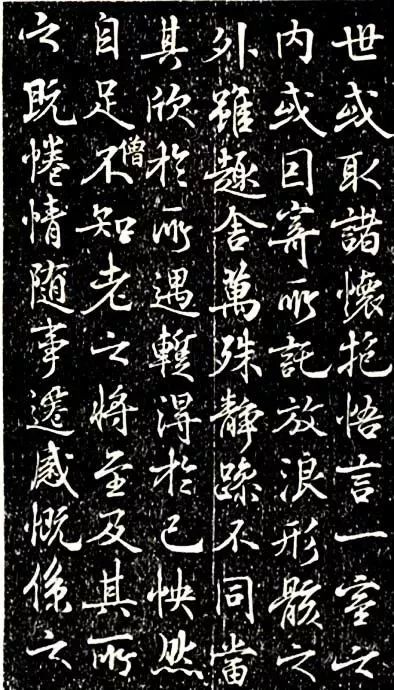 世或取諸懷抱悟言一室之
内或因寄所託放浪形骸之
外雖趣舍萬殊静躁不同當
其欣於所遇暫得於己怏然
自足不知老之將至及其所
之既惓情随事遷感慨係之
僧